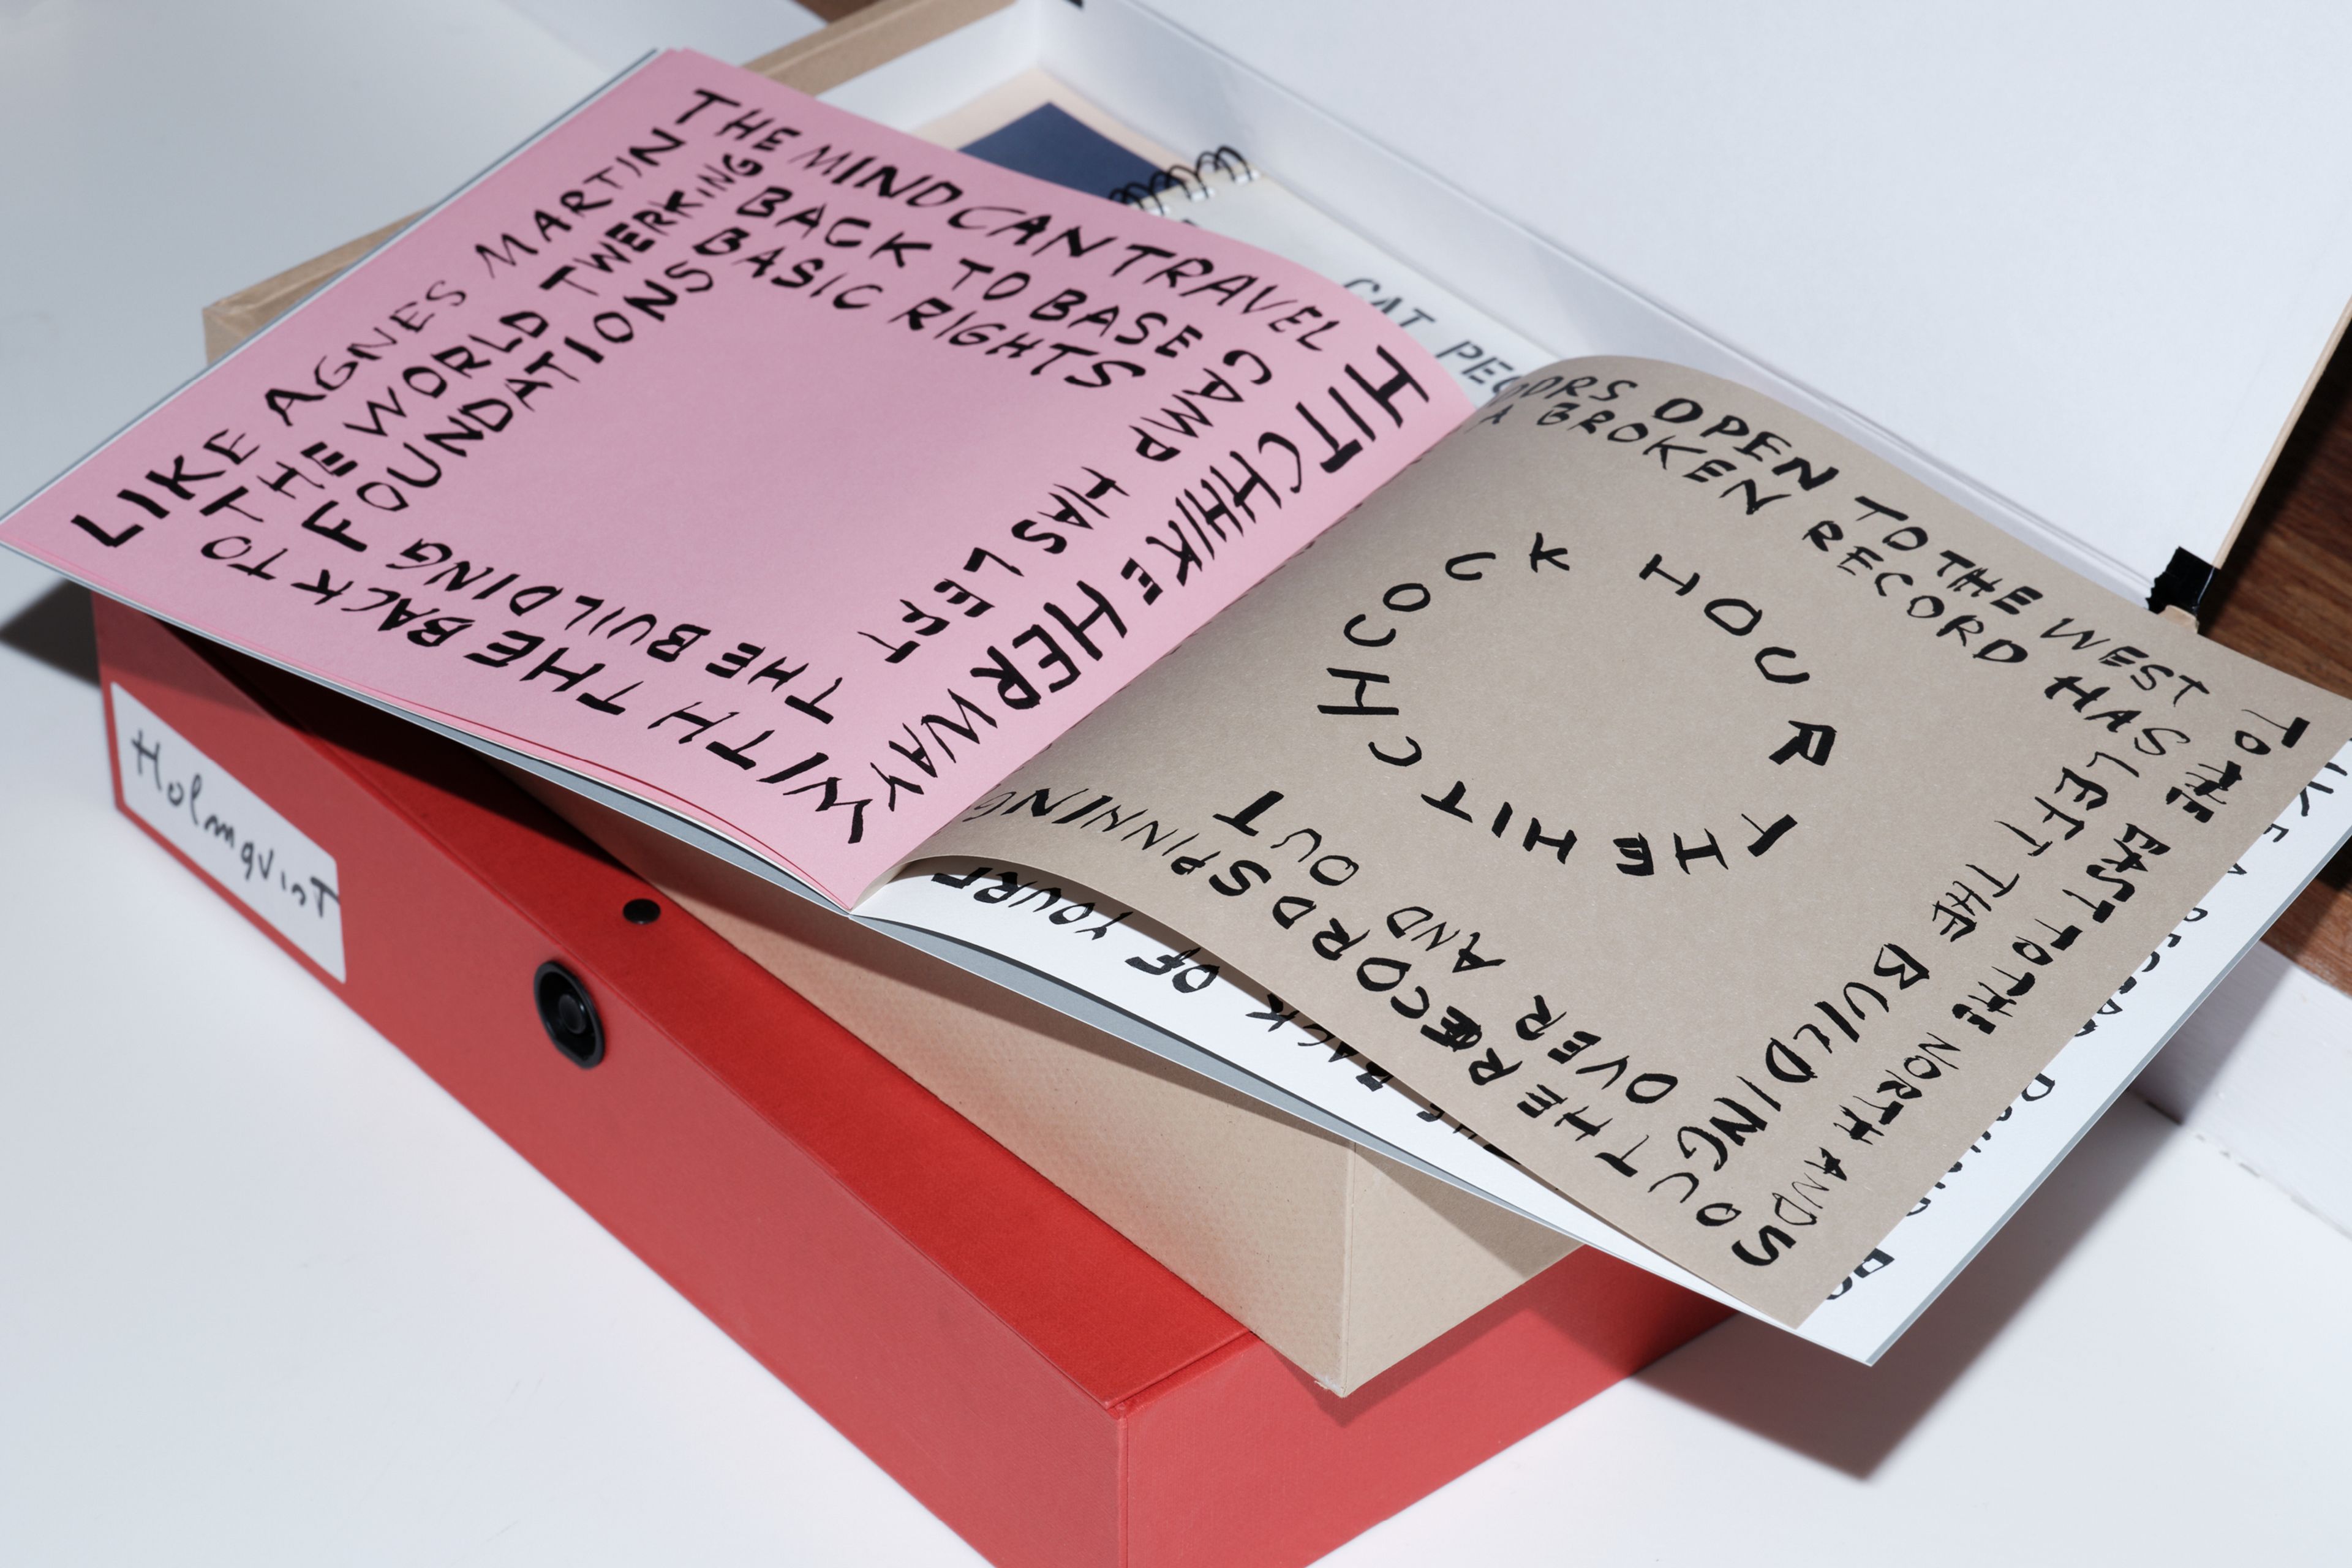 LIKE AGNES MARTIN
THE MIND CAN TRAVEL
HITCHHIKE HER WAY
WITH THE BACK TO
THE WORLD TWERKING
BACK TO BASE
CAMP HAS LEFT
THE BUILDING
FOUNDATIONS
BASIC RIGHTS
OPEN TO THE WEST
TO THE EAST TO THE NORTH AND S
OUTHE RECORD SPINNING
A BROKEN RECORD
HAS LEFT THE BUILDING
OVER AND OUT
THE HITCHCOCK HOUR
BACK OF YOUR
CAT
Holmqvist